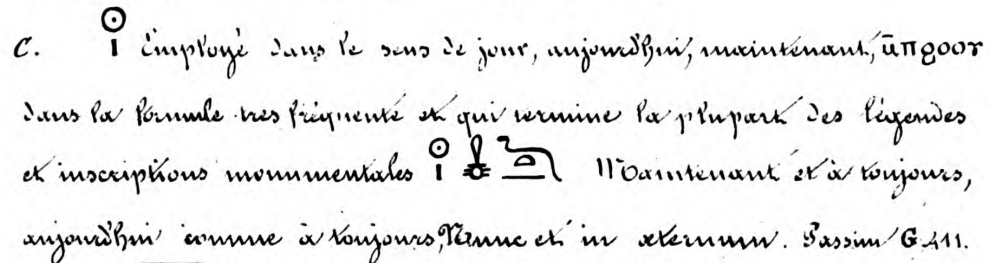 C. 𓇳𓏤 Employé dans le sens de jour, aujourd'hui, maintenant, ⲙ̄ⲡϩⲟⲟⲩ
dans la formule très fréquente et qui termine la plupart des légendes
et inscriptions monumentales 𓇳𓏤 Maintenant et à toujours,
aujourd'hui comme à toujours, Nunc et in æternum. Passim G